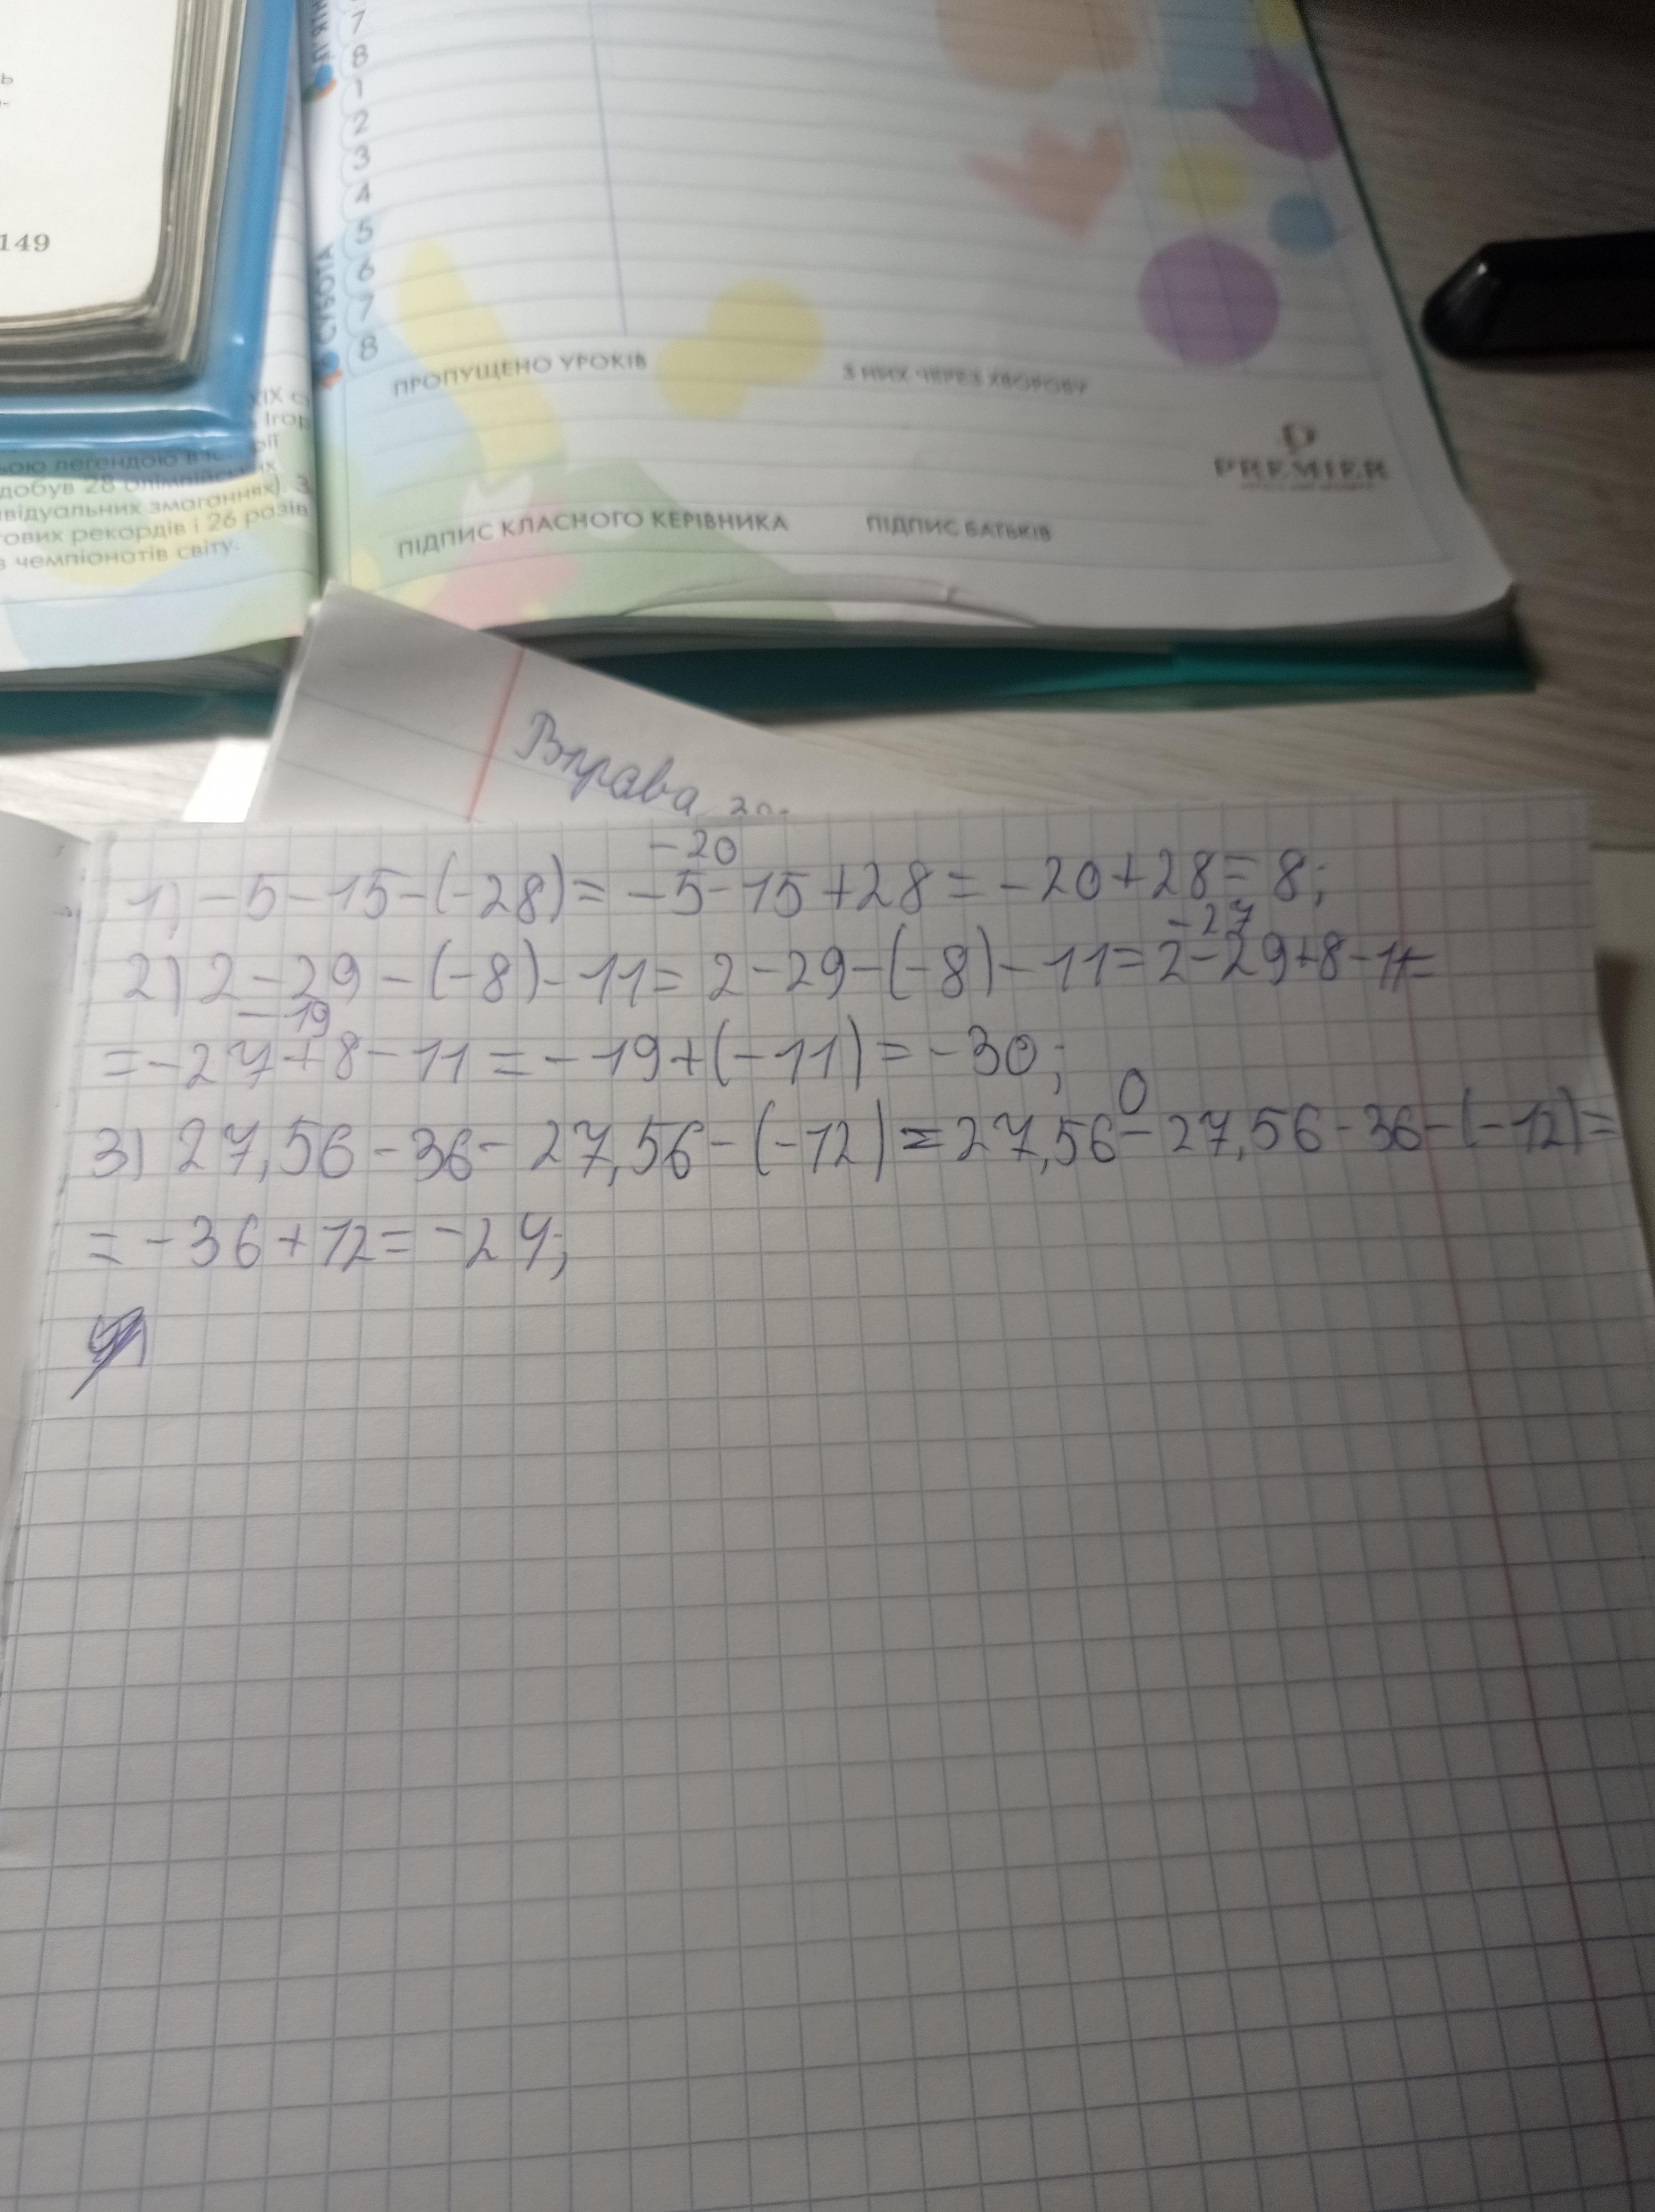 149
7
8
1
2
3
4
5
6
7
8
СУБОТА
ПРОПУЩЕНО УРОКІВ
З НИХ ЧЕРЕЗ ХВОРОБУ
PREMIER
ПІДПИС КЛАСНОГО КЕРІВНИКА
ПІДПИС БАТЬКІВ
XIX
Ігор
легендою в
добув 28 олімпійських
відуальних змаганнях). З
рекордів і 26 разів
чемпіонатів світу.
Вправа
-20
1) -5-15-(-28)= -5-15+28=-20+28=8;
-27
2) 2-29-(-8)-11= 2-29-(-8)-11=2-29+8-11=
-19
=-27+8-11=-19+(-11)=-30;
0
3) 27,56-36-27,56-(-12)=27,56-27,56-36-(-12)=
=-36+12=-24;